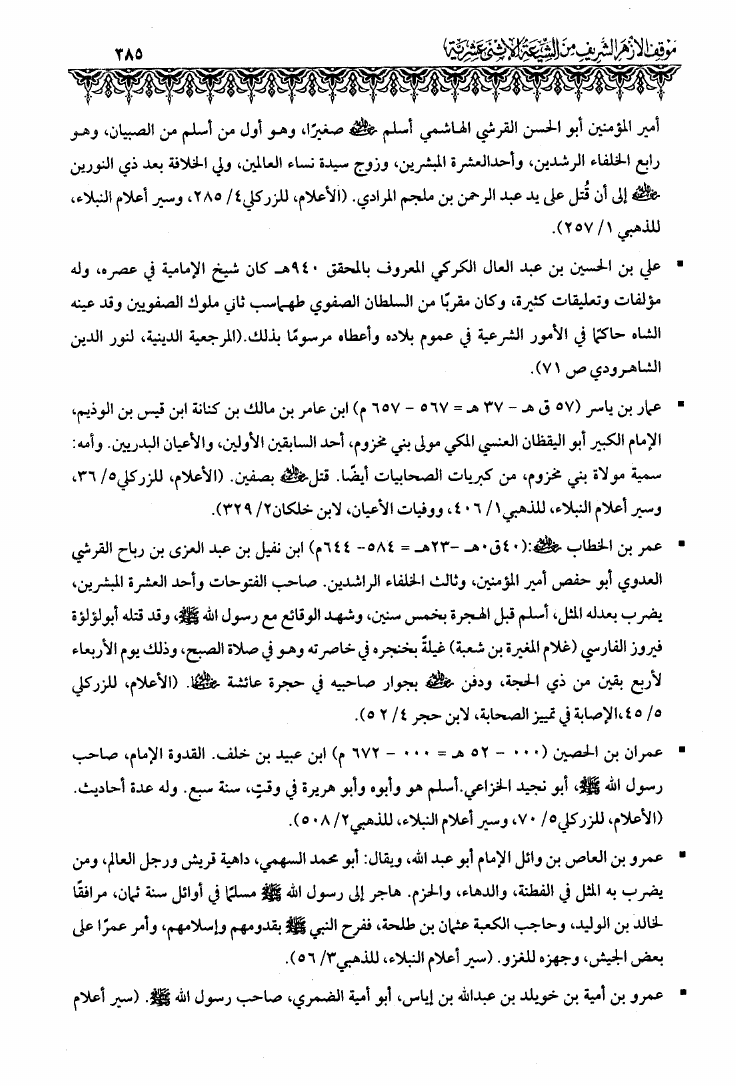 موقف الأزهر الشريف من الشيعة الاثنى عشرية
٣٨٥
أمير المؤمنين أبو الحسن القرشي الهاشمي أسلم رضي الله عنه صغيرًا، وهو أول من أسلم من الصبيان، وهو
رابع الخلفاء الرشدين، وأحدالعشرة المبشرين، وزوج سيدة نساء العالمين، ولي الخلافة بعد ذي النورين
رضي الله عنه إلى أن قُتل على يد عبد الرحمن بن ملجم المرادي. (الأعلام، للزركلي٤/ ٢٨٥، وسير أعلام النبلاء،
للذهبي ١/ ٢٥٧).
▪ علي بن الحسين بن عبد العال الكركي المعروف بالمحقق ٩٤٠هـ كان شيخ الإمامية في عصره، وله
مؤلفات وتعليقات كثيرة، وكان مقربًا من السلطان الصفوي طهماسب ثاني ملوك الصفويين وقد عينه
الشاه حاكمًا في الأمور الشرعية في عموم بلاده وأعطاه مرسومًا بذلك.(المرجعية الدينية، لنور الدين
الشاهرودي ص ٧١).
▪ عمار بن ياسر (٥٧ ق هـ - ٣٧ هـ = ٥٦٧ - ٦٥٧ م) ابن عامر بن مالك بن كنانة ابن قيس بن الوذيم،
الإمام الكبير أبو اليقظان العنسي المكي مولى بني مخزوم، أحد السابقين الأولين، والأعيان البدريين. وأمه:
سمية مولاة بني مخزوم، من كبريات الصحابيات أيضًا. قتل رضي الله عنه بصفين. (الأعلام، للزركلي٥/ ٣٦،
وسير أعلام النبلاء، للذهبي١/ ٤٠٦، ووفيات الأعيان، لابن خلكان٢/ ٣٢٩).
▪ عمر بن الخطاب رضي الله عنه:(٤٠ق٠هـ -٢٣هـ = ٥٨٤- ٦٤٤م) ابن نفيل بن عبد العزى بن رباح القرشي
العدوي أبو حفص أمير المؤمنين، وثالث الخلفاء الراشدين. صاحب الفتوحات وأحد العشرة المبشرين،
يضرب بعدله المثل، أسلم قبل الهجرة بخمس سنين، وشهد الوقائع مع رسول الله ﷺ، وقد قتله أبولؤلؤة
فيروز الفارسي (غلام المغيرة بن شعبة) غيلةً بخنجره في خاصرته وهو في صلاة الصبح، وذلك يوم الأربعاء
لأربع بقين من ذي الحجة، ودفن رضي الله عنه بجوار صاحبيه في حجرة عائشة رضي الله عنها. (الأعلام، للزركلي
٥/ ٤٥،الإصابة في تمييز الصحابة، لابن حجر ٤/ ٥٢).
▪ عمران بن الحصين (٠٠٠ - ٥٢ هـ = ٠٠٠ - ٦٧٢ م) ابن عبيد بن خلف. القدوة الإمام، صاحب
رسول الله ﷺ، أبو نجيد الخزاعي.أسلم هو وأبوه وأبو هريرة في وقتٍ، سنة سبع. وله عدة أحاديث.
(الأعلام، للزركلي٥/ ٧٠، وسير أعلام النبلاء، للذهبي٢/ ٥٠٨).
▪ عمرو بن العاص بن وائل الإمام أبو عبد الله، ويقال: أبو محمد السهمي، داهية قريش ورجل العالم، ومن
يضرب به المثل في الفطنة، والدهاء، والحزم. هاجر إلى رسول الله ﷺ مسلمًا في أوائل سنة ثمان، مرافقًا
لخالد بن الوليد، وحاجب الكعبة عثمان بن طلحة، ففرح النبي ﷺ بقدومهم وإسلامهم، وأمر عمرًا على
بعض الجيش، وجهزه للغزو. (سير أعلام النبلاء، للذهبي٣/ ٥٦).
▪ عمرو بن أمية بن خويلد بن عبدالله بن إياس، أبو أمية الضمري، صاحب رسول الله ﷺ. (سير أعلام